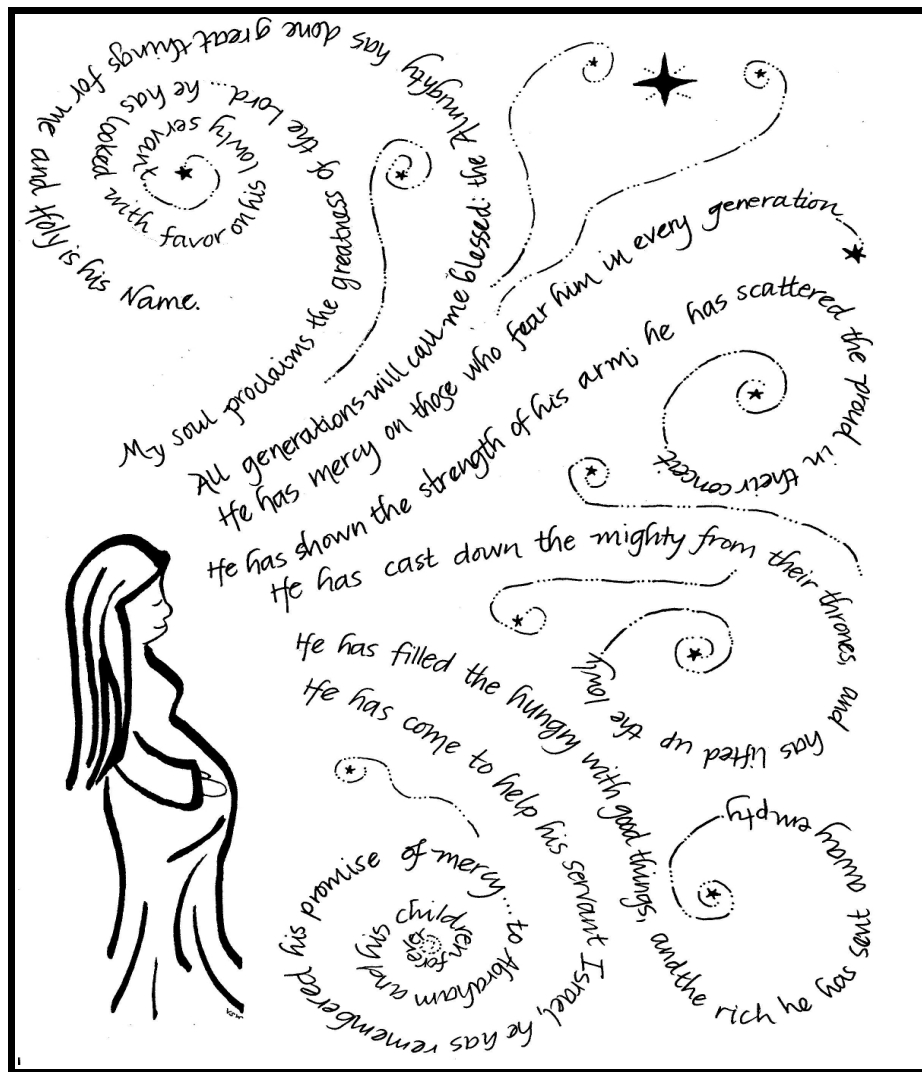 My soul proclaims the greatness of the Lord... he has looked with favor on his lowly servant
All generations will call me blessed: the Almighty has done great things for me and Holy is his Name.
He has mercy on those who fear him in every generation
He has shown the strength of his arm; he has scattered the proud in their conceit
He has cast down the mighty from their thrones, and has lifted up the lowly
He has filled the hungry with good things, and the rich he has sent away empty
He has come to help his servant Israel, he has remembered his promise of mercy... to Abraham and his children forever